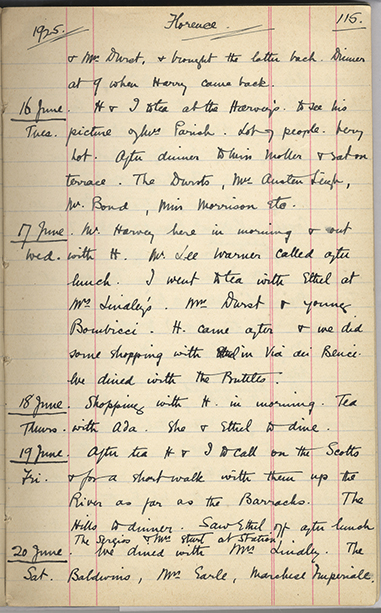 1925. Florence. 115.
& Mrs Durst, & brought the latter back. Dinner
at 9 when Harry came back.
16 June. H & I to tea at the Harveys to see his
Tues. picture of Mrs Parish. Lot of people. Very
hot. After dinner to Miss Moller & sat on
terrace. The Dursts, Mrs Austen Leigh,
Mr. Bond, Miss Morrison etc.
17 June. Mr. Harvey here in morning & out
Wed. with H. Mr. Lee Warner called after
lunch. I went to tea with Ethel at
Mrs Lindley's. Mrs Durst & young
Bombicci. H. came after & we did
some shopping with in Via dei Benci.
We dined with the
18 June. Shopping with H. in morning. Tea
Thurs. with Ada. She & Ethel to dine.
19 June. After tea H & I to call on the Scotts
Fri. & for a short walk with them up the
River as far as the Barracks. The
Hills to dinner. Saw Ethel off after lunch
The & Mrs at Station.
20 June. We dined with Mrs Lindley. The
Sat. Baldwins, Mrs Earle, Marchese Imperiale.